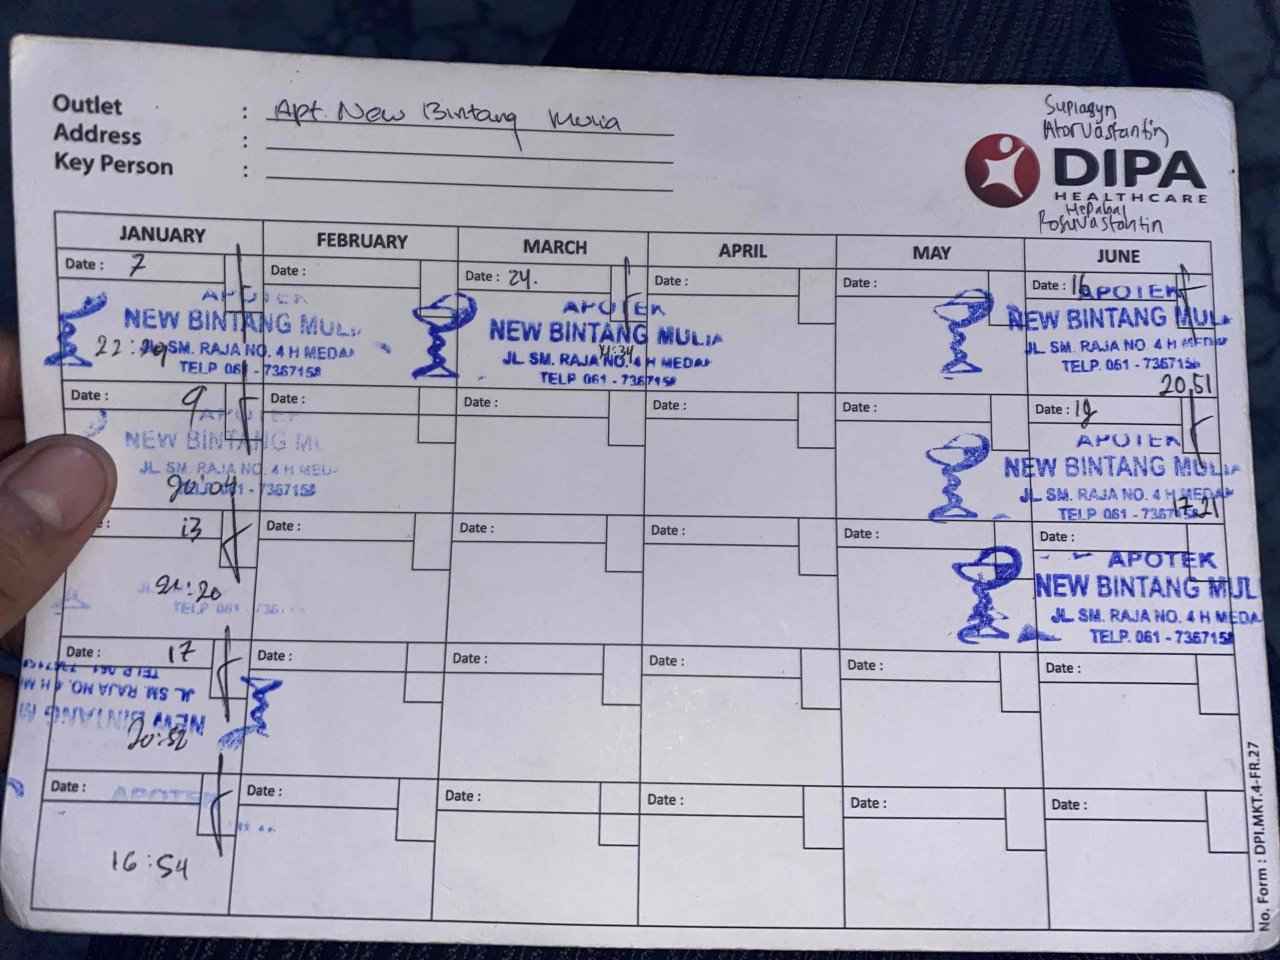 Outlet : Apt. New Bintang Mulia
Address :
Key Person :
Suplasyn
Atorvastantin
DIPA
HEALTHCARE
Hepabal
Rosuvastantin
JANUARY FEBRUARY MARCH APRIL MAY JUNE
Date : 7 Date : Date : 24. Date : Date : Date : 16
APOTEK
NEW BINTANG MULIA
JL SM. RAJA NO. 4 H MEDAN
TELP 061 - 7367158
22:29
APOTEK
NEW BINTANG MULIA
JL SM. RAJA NO. 4 H MEDAN
TELP 061 - 7367158
APOTEK
NEW BINTANG MULIA
JL SM. RAJA NO. 4 H MEDAN
TELP. 061 - 7367158
20,51
Date : 9 Date : Date : Date : Date : Date : 18
APOTEK
NEW BINTANG MU
JL SM. RAJA NO. 4 H MEDA
061 - 7367158
20:04
APOTEK
NEW BINTANG MULIA
JL SM. RAJA NO. 4 H MEDAN
TELP 061 - 7367158
17.21
e : 13 Date : Date : Date : Date : Date :
21:20
TELP 061 - 736
APOTEK
NEW BINTANG MUL
JL SM. RAJA NO. 4 H MEDA
TELP. 061 - 7367158
Date : 17 Date : Date : Date : Date : Date :
TELP 061 - 7367158
JL SM. RAJA NO. 4 H M
NEW BINTANG M
20:52
Date : Date : Date : Date : Date : Date :
APOTEK
16:54
No. Form : DPI.MKT.4-FR.27